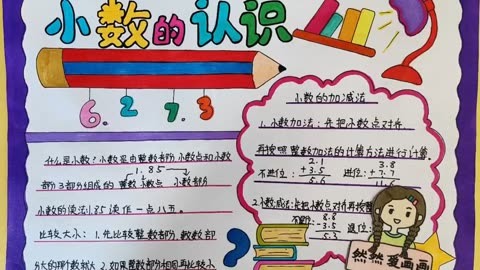 小数的认识
6.2 7.3
什么是小数?小数是由整数部分 小数点和小数
部分3部分组成的
1.85
整数 小数点 小数部分
小数的读法1.85读作一点八五。
比较大小:1.先比较整数部分,整数部
分大的那个数就大 2.如果整数部分相同再比较小
小数的加减法
1.小数加法:先把小数点对齐
再按照整数加法的计算方法进行计算。
不进位: 2.1 + 3.5 5.6
进位: 3.8 + 7.7
2.小数减法:先把小数点对齐再按
8.8 - 3.5 5.3
退位:
然然爱画画